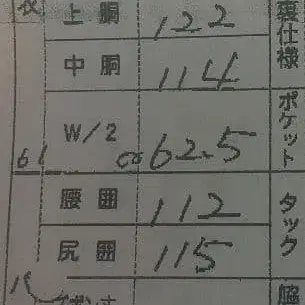 上胴 122
中胴 114
W/2 62.5
61
腰囲 112
尻囲 115
裏仕様
ポケット
タック
脇